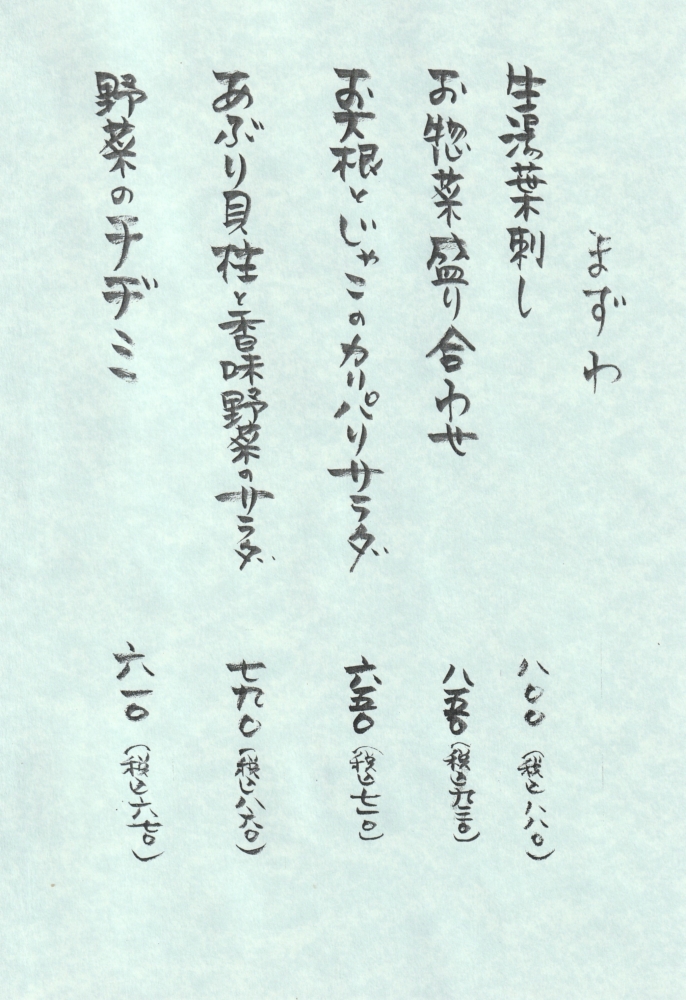 まずわ
生湯葉刺し 八〇〇(税込八八〇)
お惣菜盛り合わせ 八五〇(税込九三〇)
お大根とじゃこのカリパリサラダ 六五〇(税込七一〇)
あぶり貝柱と香味野菜のサラダ 七九〇(税込八六〇)
野菜のチヂミ 六一〇(税込六七〇)